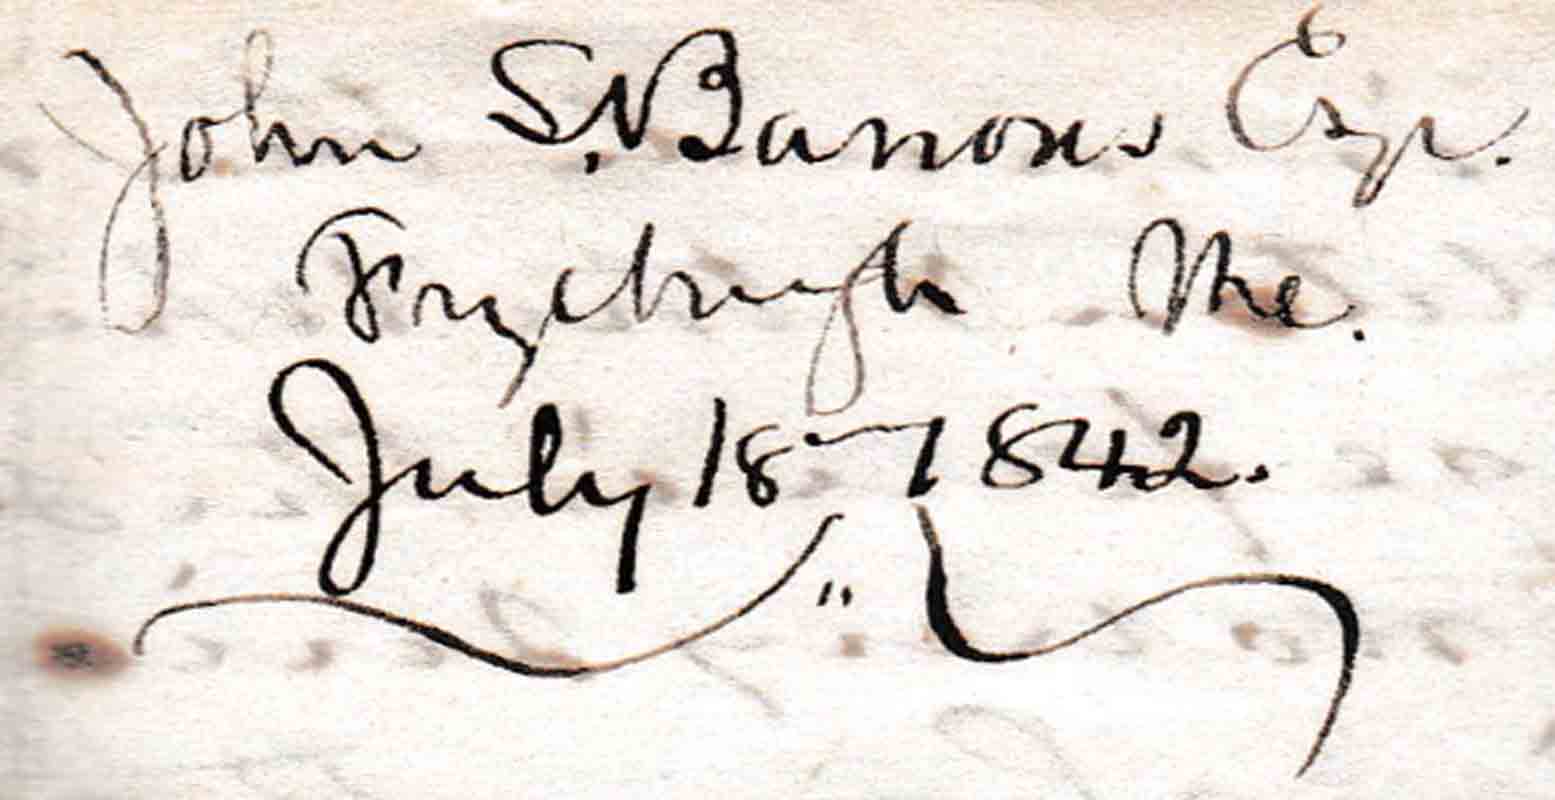 John S. Barrows Esqr.
Fryeburgh Me.
July 18— 1842.